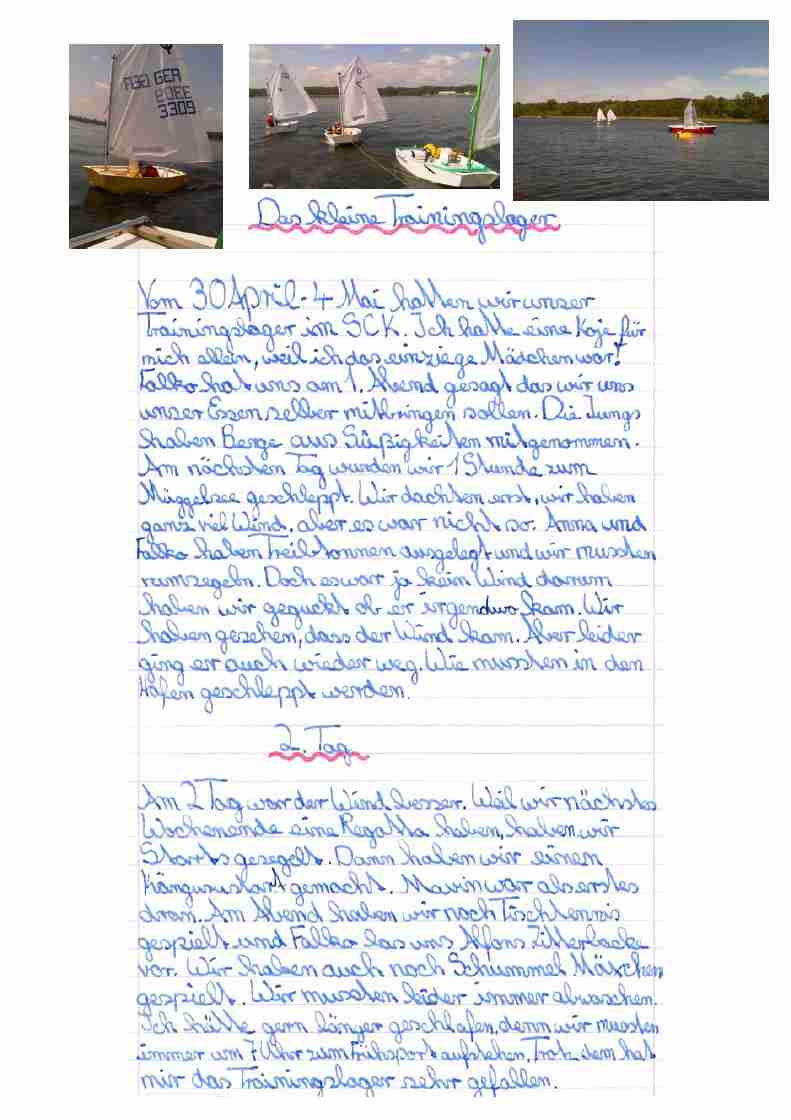 GER
3309
Das kleine Trainingslager
Vom 30 April - 4 Mai hatten wir unser
Trainingslager im SCK. Ich hatte eine Koje für
mich allein, weil ich das einziege Mädchen war!
Falko hat uns am 1. Abend gesagt das wir uns
unser Essen selber mitbringen sollen. Die Jungs
haben Berge aus Süßigkeiten mitgenommen.
Am nächsten Tag wurden wir 1 Stunde zum
Müggelsee geschleppt. Wir dachten erst, wir haben
ganz viel Wind, aber es war nicht so. Anna und
Falko haben Treibtonnen ausgelegt und wir mussten
rumsegeln. Doch es war ja kein Wind darum
haben wir geguckt ob er irgendwo kam. Wir
haben gesehen, dass der Wind kam. Aber leider
ging er auch wieder weg. Wie mussten in den
Hafen geschleppt werden.
2. Tag
Am 2 Tag war der Wind besser. Weil wir nächstes
Wochenende eine Regatta haben, haben wir
Starts gesegelt. Dann haben wir einen
Kängurustart gemacht. Marvin war als erstes
dran. Am Abend haben wir noch Tischtennis
gespielt und Falko las uns Alfons Zitterbacke
vor. Wir haben auch noch Schummel Mäxchen
gespielt. Wir mussten leider immer abwaschen.
Ich hätte gern länger geschlafen, denn wir mussten
immer um 7 Uhr zum Frühsport aufstehen. Trotz dem hat
mir das Trainingslager sehr gefallen.